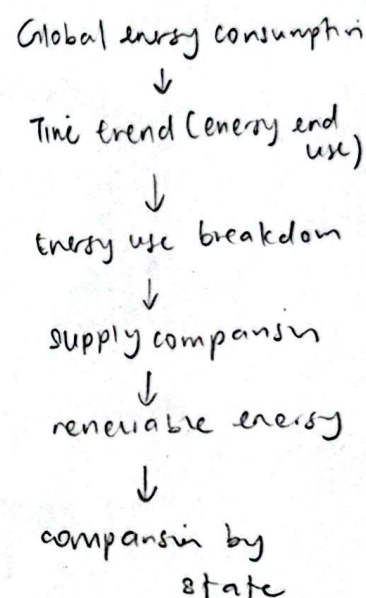 Global energy consumption
↓
Time trend (energy end
use)
↓
Energy use breakdown
↓
supply comparison
↓
renewable energy
↓
comparison by
state